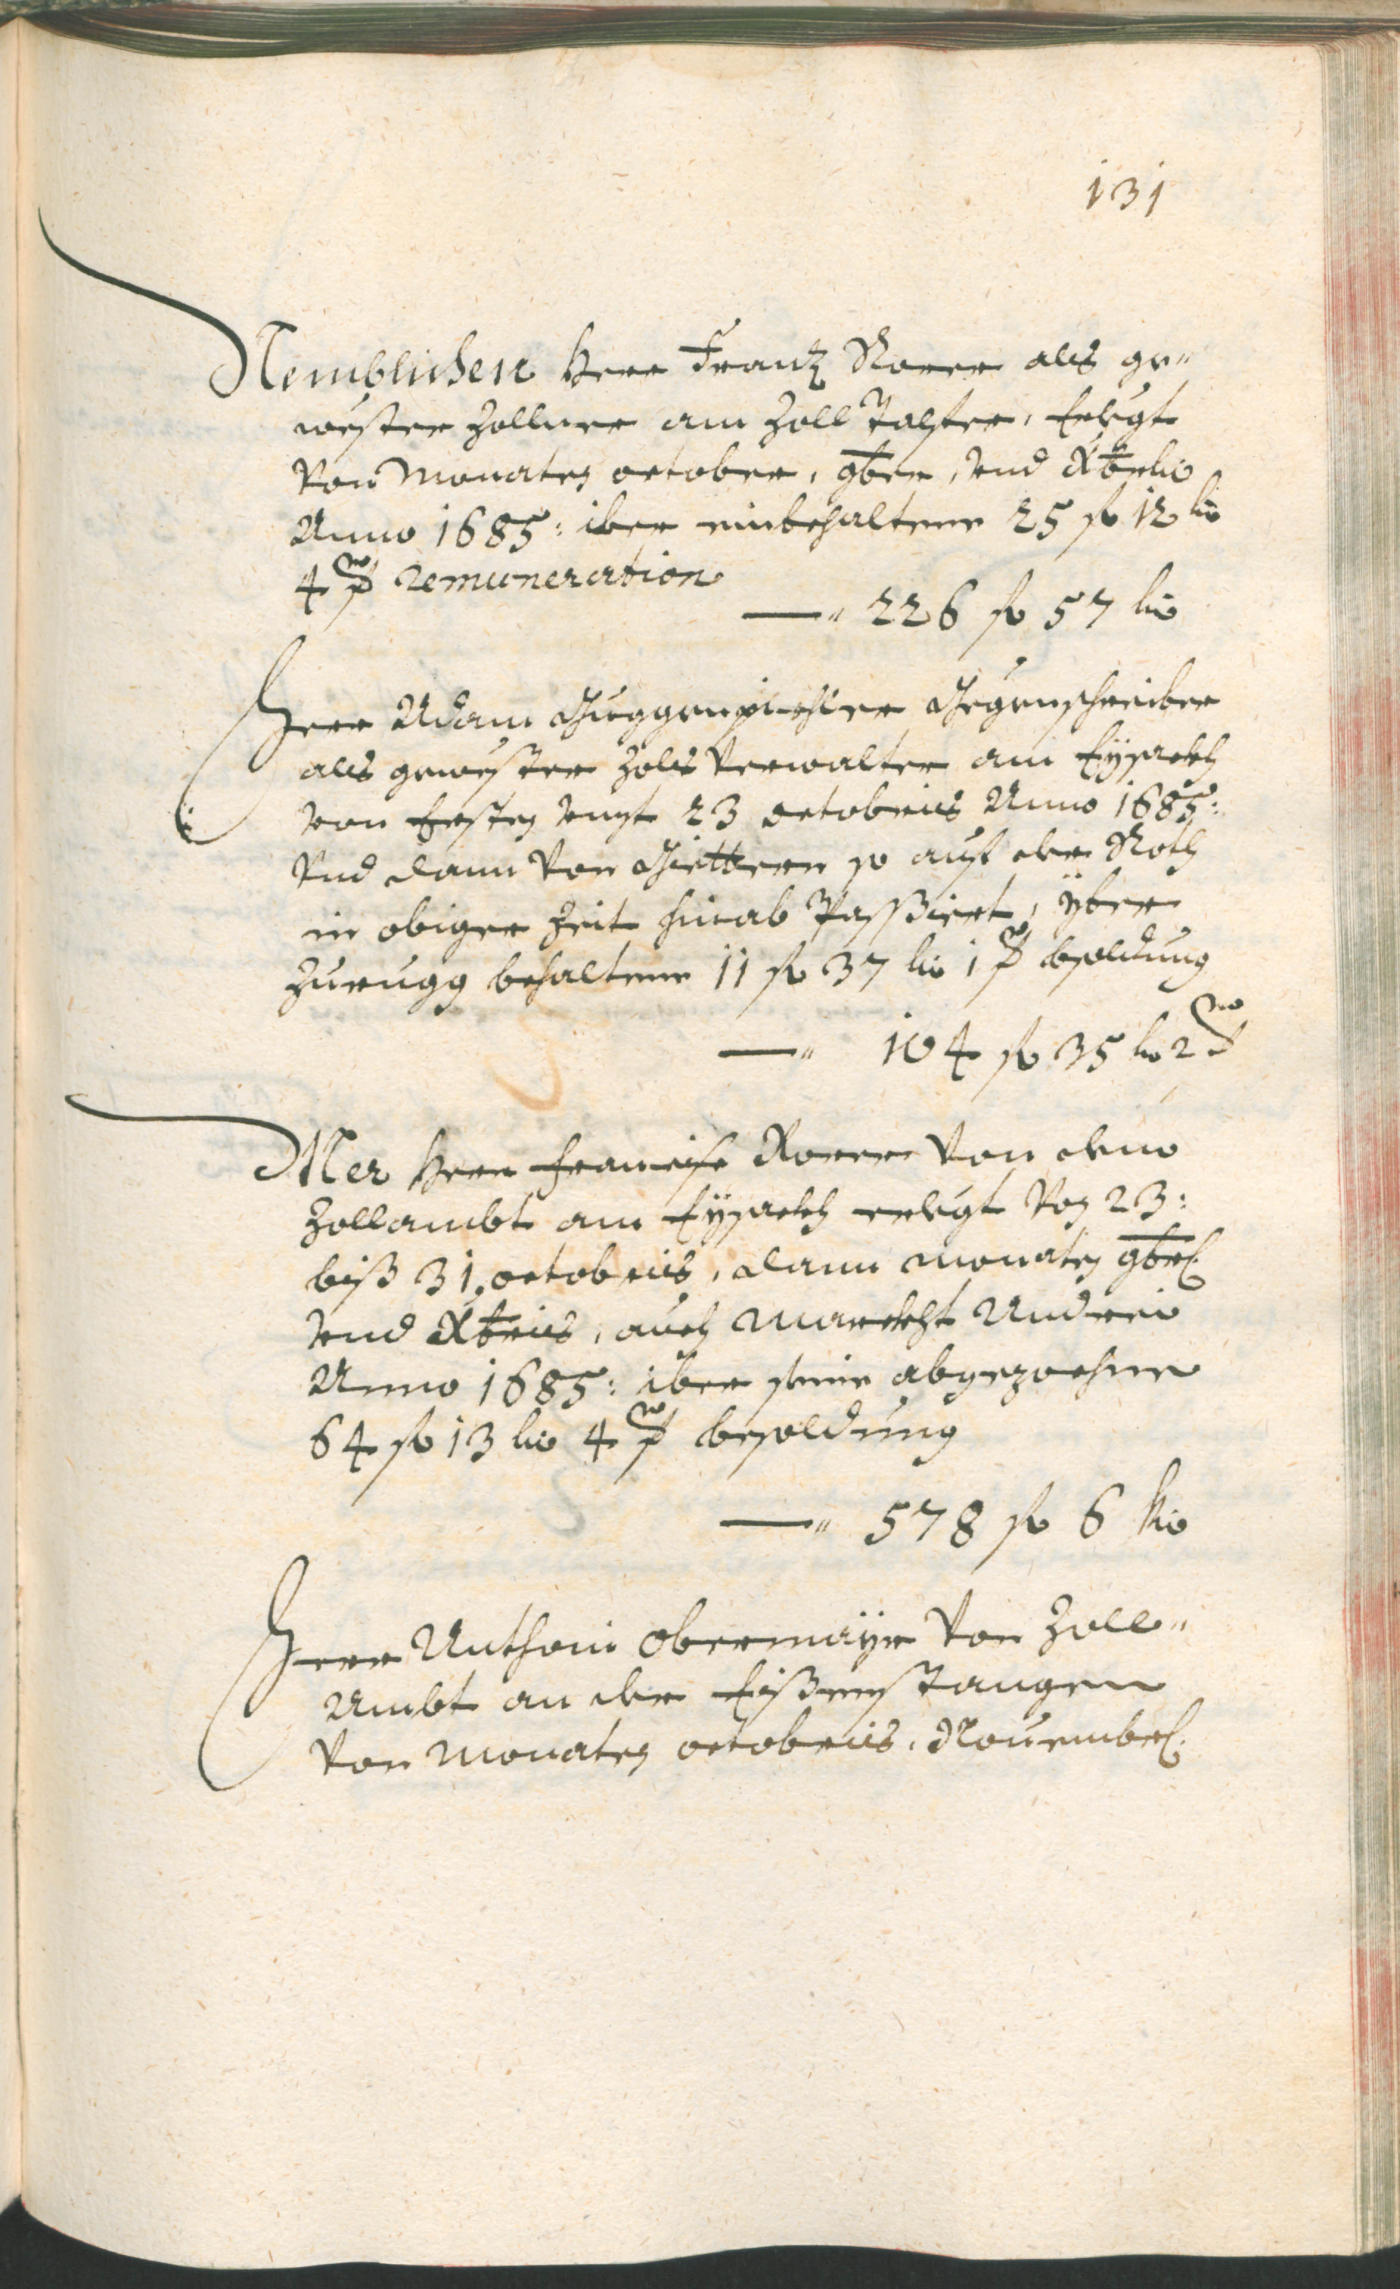 131
Nemblichen Herr Frantz Rorer als ge„
wester Zollner am Zoll Talfer, Erlegt
Von Monaten october, 9ber, vnd Xbris
Anno 1685: iber einbehaltene 25 fl 12 kr
4 ₰ remuneration
—„ 226 fl 57 kr
Herr Adam Guggenpichler Gegenschreiber
als gewester Zolls Verwalter am Eysackh
von Ersten vnzt 23 octobris Anno 1685:
Vnd dann von Güettern so auf der Rotth
in obiger Zeit hinab Passiert, yber
Zurugg behaltene 11 fl 37 kr 1 ₰ besoldung
—„ 104 fl 35 kr 2 ₰
Mer Herr Francisc Rorer Von dem
Zollambt am Eysackh erlegt Von 23:
biß 31. octobris, dann monaten 9bris
vnd Xbris, auch Marckht Andrei
Anno 1685: iber seine abgezochene
64 fl 13 kr 4 ₰ besoldung
—„ 578 fl 6 kr
Herr Anthoni Obermayr Von Zoll„
Ambt an der Eißenstangen
Von Monaten octobris, Nouembris